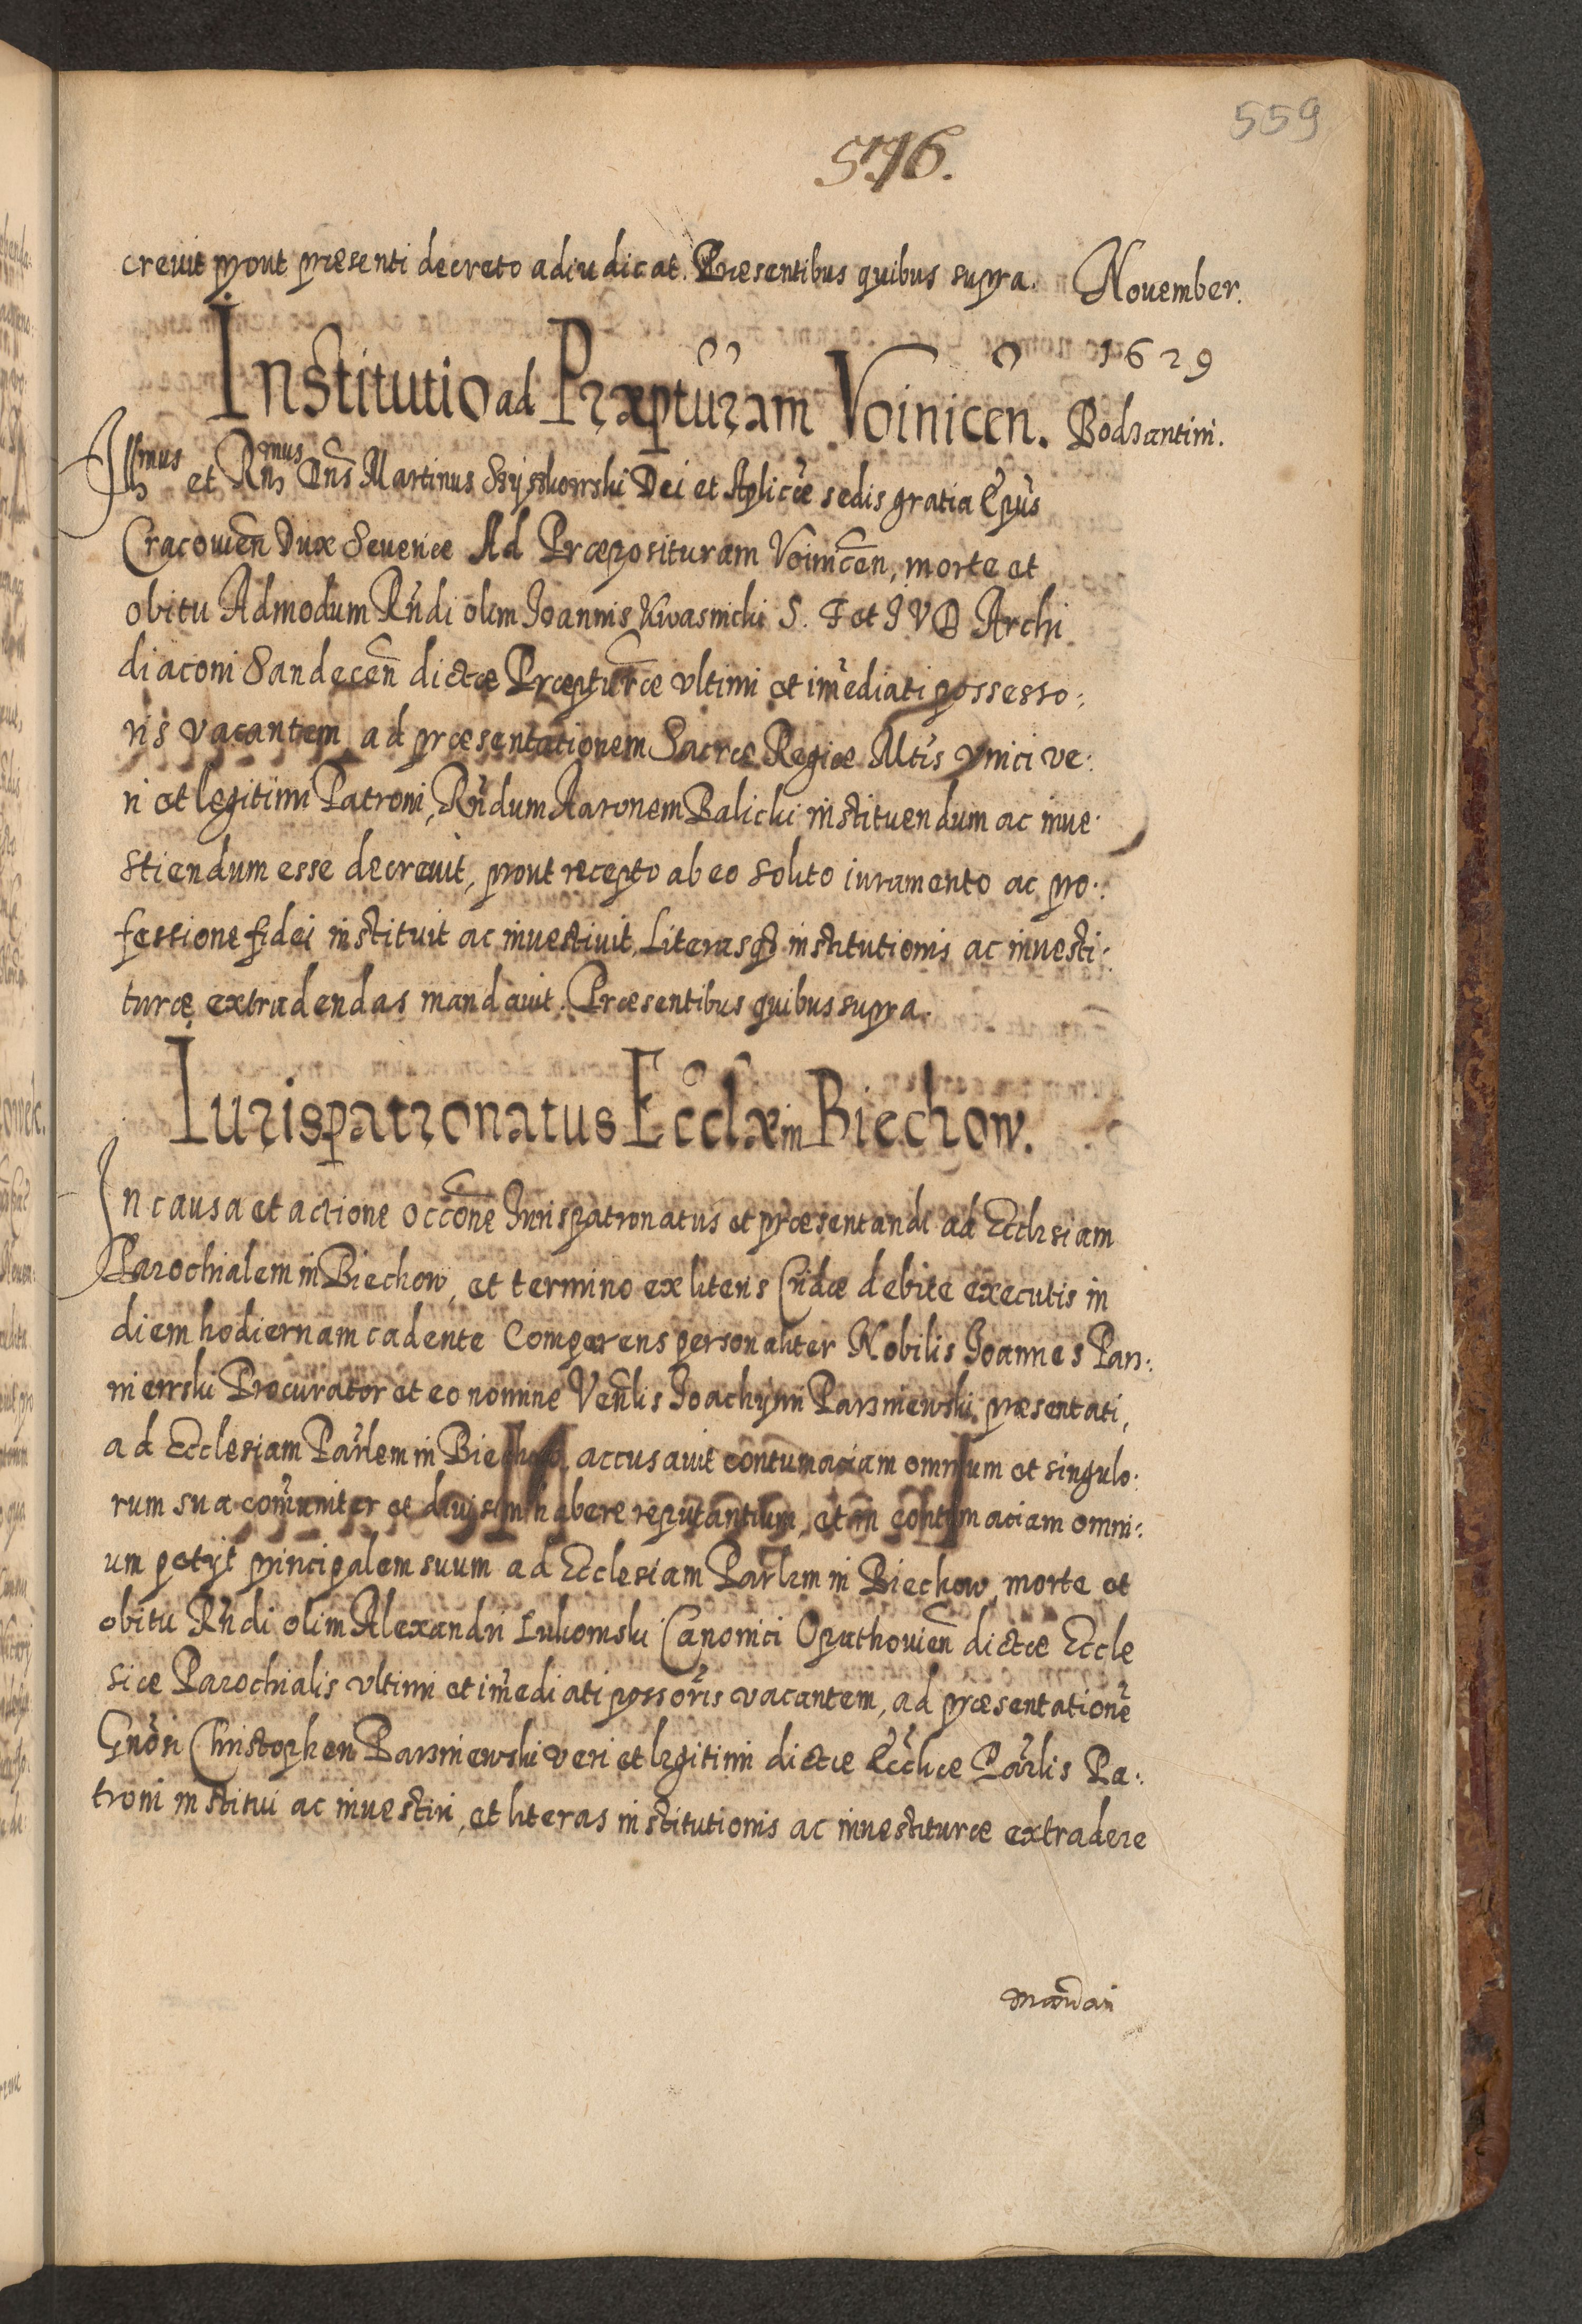 559
576.
creuit prout præsenti decreto adiudicat. Præsentibus quibus supra.
Nouember.
1629
Bodzantini.
Institutio ad Præpturam Voinicen.
Illmus et Rnmus Dns Martinus Szyszkowski Dei et Aplicæ sedis gratia Epus
Cracouien Dux Seueriæ Ad Præposituram Voinicen, morte et
obitu Admodum Rndi olim Joannis Kwasnicki S. T et J V D Archi
diaconi Sandecen dictæ Præpturæ vltimi et imediati possesso:
ris vacantem, ad præsentationem Sacræ Regiæ Mtis vnici ve:
ri et legitimi Patroni, Rndum Aaronem Balicki instituendum ac inue:
stiendum esse decreuit, prout recepto ab eo solito iuramento ac pro:
fessione fidei instituit ac inuestiuit, Literasq institutionis ac inuesti:
turæ extradendas mandauit. Præsentibus quibus supra.
Iurispatronatus Ecclæ in Biechow.
In causa et actione occone Jurispatronatus et præsentandi ad Ecclesiam
Parochialem in Biechow, et termino ex literis Cridæ debite executis in
diem hodiernam cadente Comparens personaliter Nobilis Joannes Parz:
niewski Procurator et eo nomine Venlis Joachymi Parzniewski præsentati,
ad Ecclesiam Parlem in Biechow accusauit contumaciam omnium et singulo:
rum sua comuniter et diuisim habere reputantium, et in contumaciam omni:
um petyt principalem suum ad Ecclesiam Parlem in Biechow, morte et
obitu Rndi olim Alexandri Lukomski Canonici Opathouien dictæ Eccle
siæ Parochialis vltimi et imediati possoris vacantem, ad præsentatione
Gnosi Christopheri Parzniewski veri et legitimi dictæ Eccliæ Parlis Pa:
troni institui ac inuestiri, et literas institutionis ac inuestituræ extradere
mandari